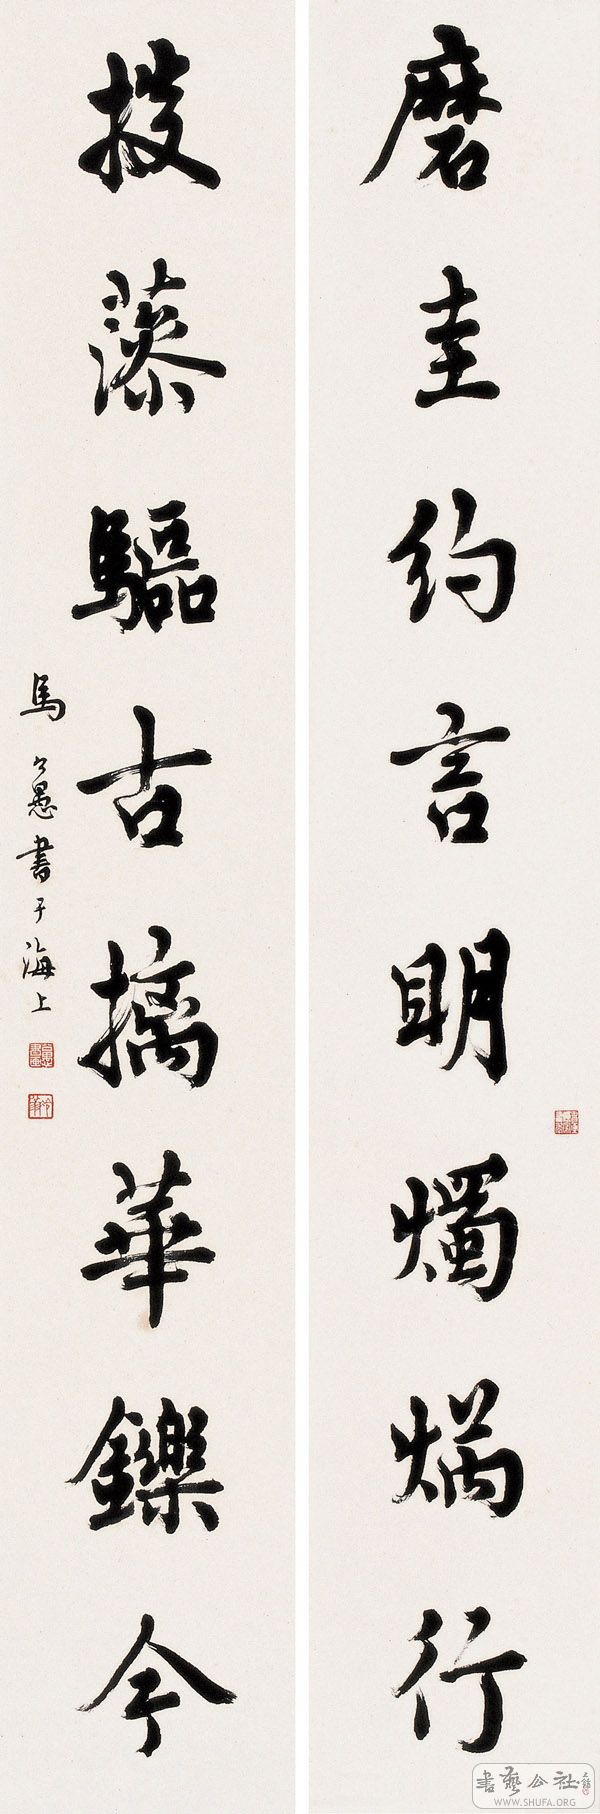 磨圭約言明燭焫行
掞藻驅古摛華鑠今
馬公愚書于海上
書藝公社
WWW.SHUFA.ORG